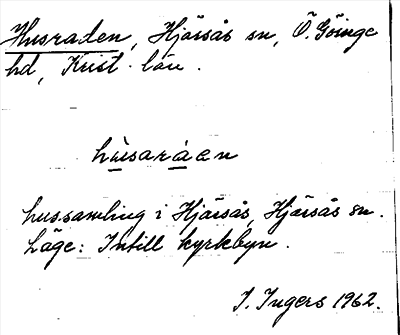 Husraden, Hjärsås sn, Ö. Göinge
hd, Krist. län.
hùsaråen
hussamling i Hjärsås, Hjärsås sn.
Läge: Intill kyrkbyn.
I. Ingers 1962.